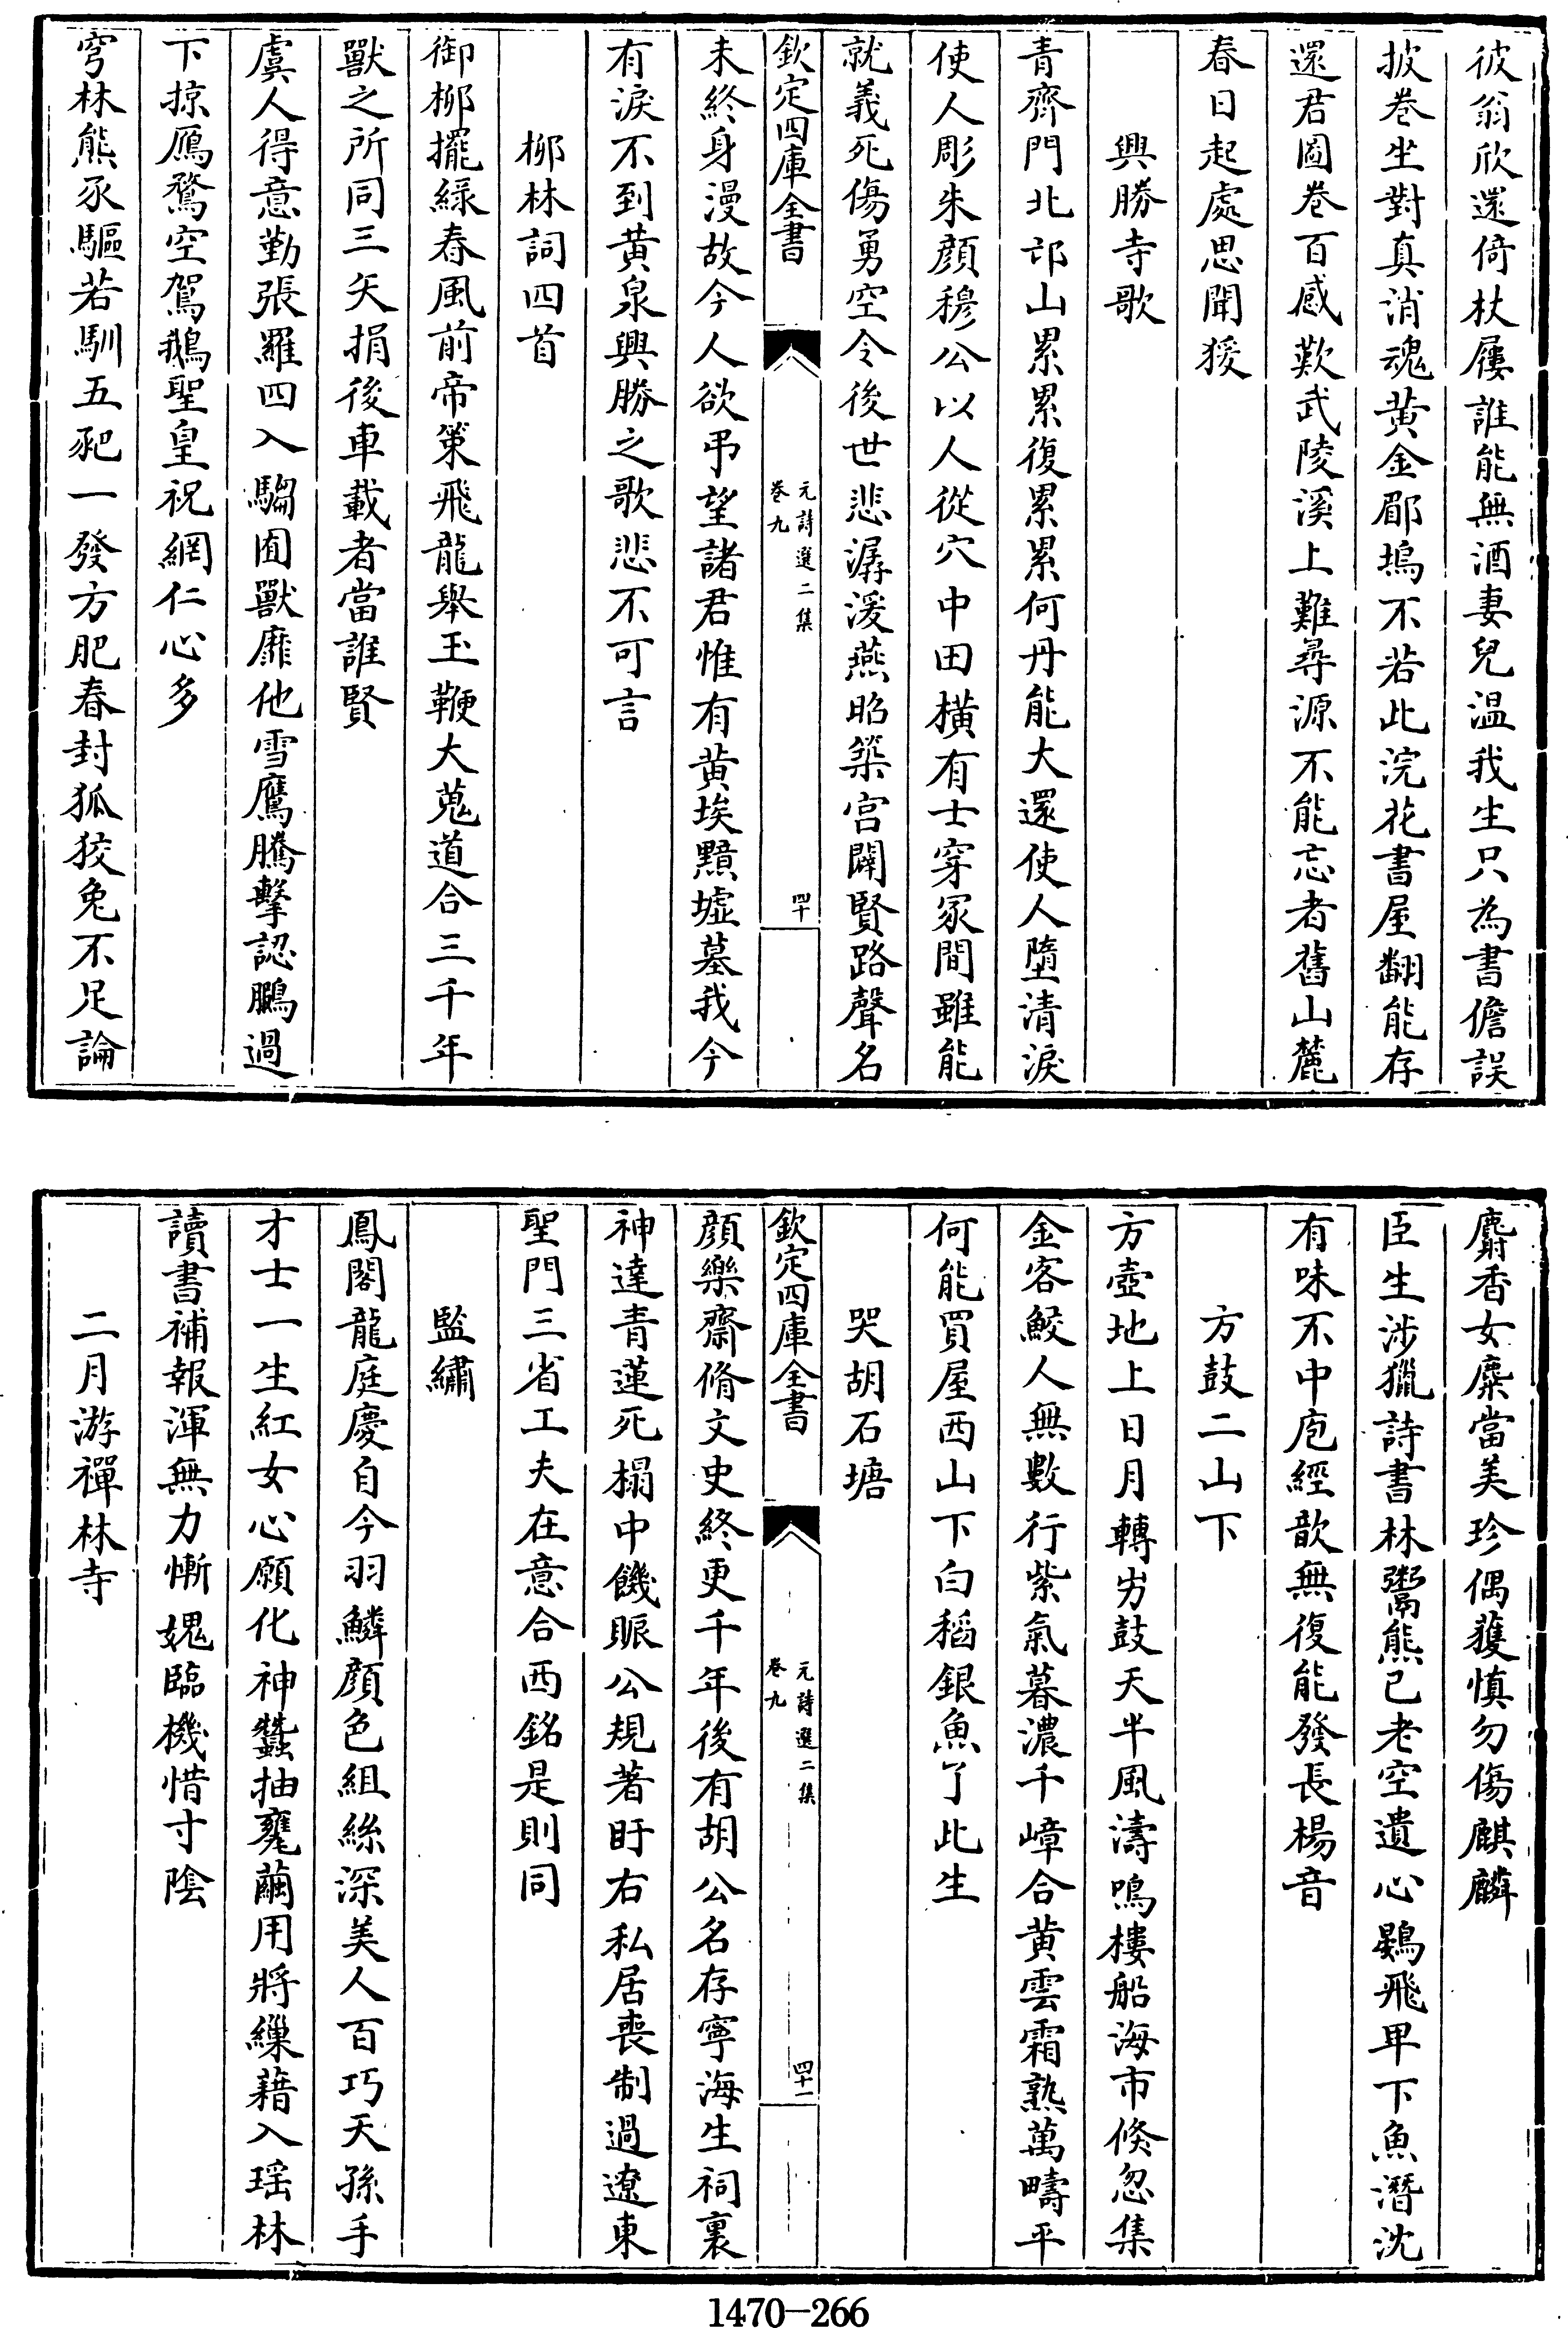 彼翁欣還倚杖屨誰能無酒妻兒温我生只為書儋誤
披卷坐對真消魂黄金郿塢不若此浣花書屋翻能存
還君圖卷百感歎武陵溪上難尋源不能忘者舊山麓
春日起處思聞猨
興勝寺歌
青齊門北邙山累累復累累何丹能大還使人墮清淚
使人彫朱顔穆公以人從穴中田横有士穿冢間雖能
就義死傷勇空令後世悲潺湲燕昭築宫闢賢路聲名
欽定四庫全書
元詩選二集
卷九
四十
未終身漫故今人欲弔望諸君惟有黄埃黯墟墓我今
有淚不到黄泉興勝之歌悲不可言
柳林詞四首
御柳擺緑春風前帝策飛龍舉玉鞭大蒐道合三千年
獸之所同三矢捐後車載者當誰賢
虞人得意勤張羅四入騶囿獸靡他雪鷹騰擊認鵬過
下掠鴈鶩空駕鵝聖皇祝網仁心多
穹林熊豕驅若馴五豝一發方肥春封狐狡兔不足論
麝香女麋當美珍偶獲慎勿傷麒麟
臣生涉獵詩書林鬻熊已老空遺心鷃飛卑下魚潛沈
有味不中庖經歆無復能發長楊音
方鼓二山下
方壺地上日月轉岇鼓天半風濤鳴樓船海市倐忽集
金客鮫人無數行紫氣暮濃千嶂合黄雲霜熟萬疇平
何能買屋西山下白稻銀魚了此生
哭胡石塘
欽定四庫全書
元詩選二集
卷九
四十一
顔樂齋脩文史終更千年後有胡公名存寧海生祠裏
神達青蓮死榻中饑賑公規著盱右私居喪制過遼東
聖門三省工夫在意合西銘是則同
監繡
鳳閣龍庭慶自今羽鱗顔色組絲深美人百巧天孫手
才士一生紅女心願化神蠶抽䙥繭用將繅藉入瑶林
讀書補報渾無力慚媿臨機惜寸陰
二月游禪林寺
1470-266